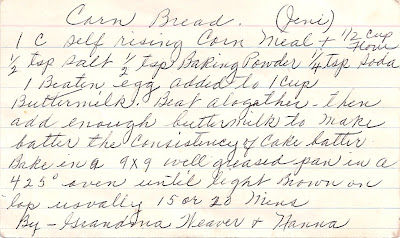 Corn Bread. (Jeni)
1 C self rising Corn Meal + 1/2 cup Flour
1/2 tsp salt 1/2 tsp Baking Powder 1/4 tsp Soda
1 Beaten egg added to 1 cup
Buttermilk. Beat alogather - then
add enough buttermilk to make
batter the Consistency of Cake batter
Bake in a 9x9 well greased pan in a
425° oven until light Brown on
top usually 15 or 20 Mins
By - Grandma Weaver & Hanna